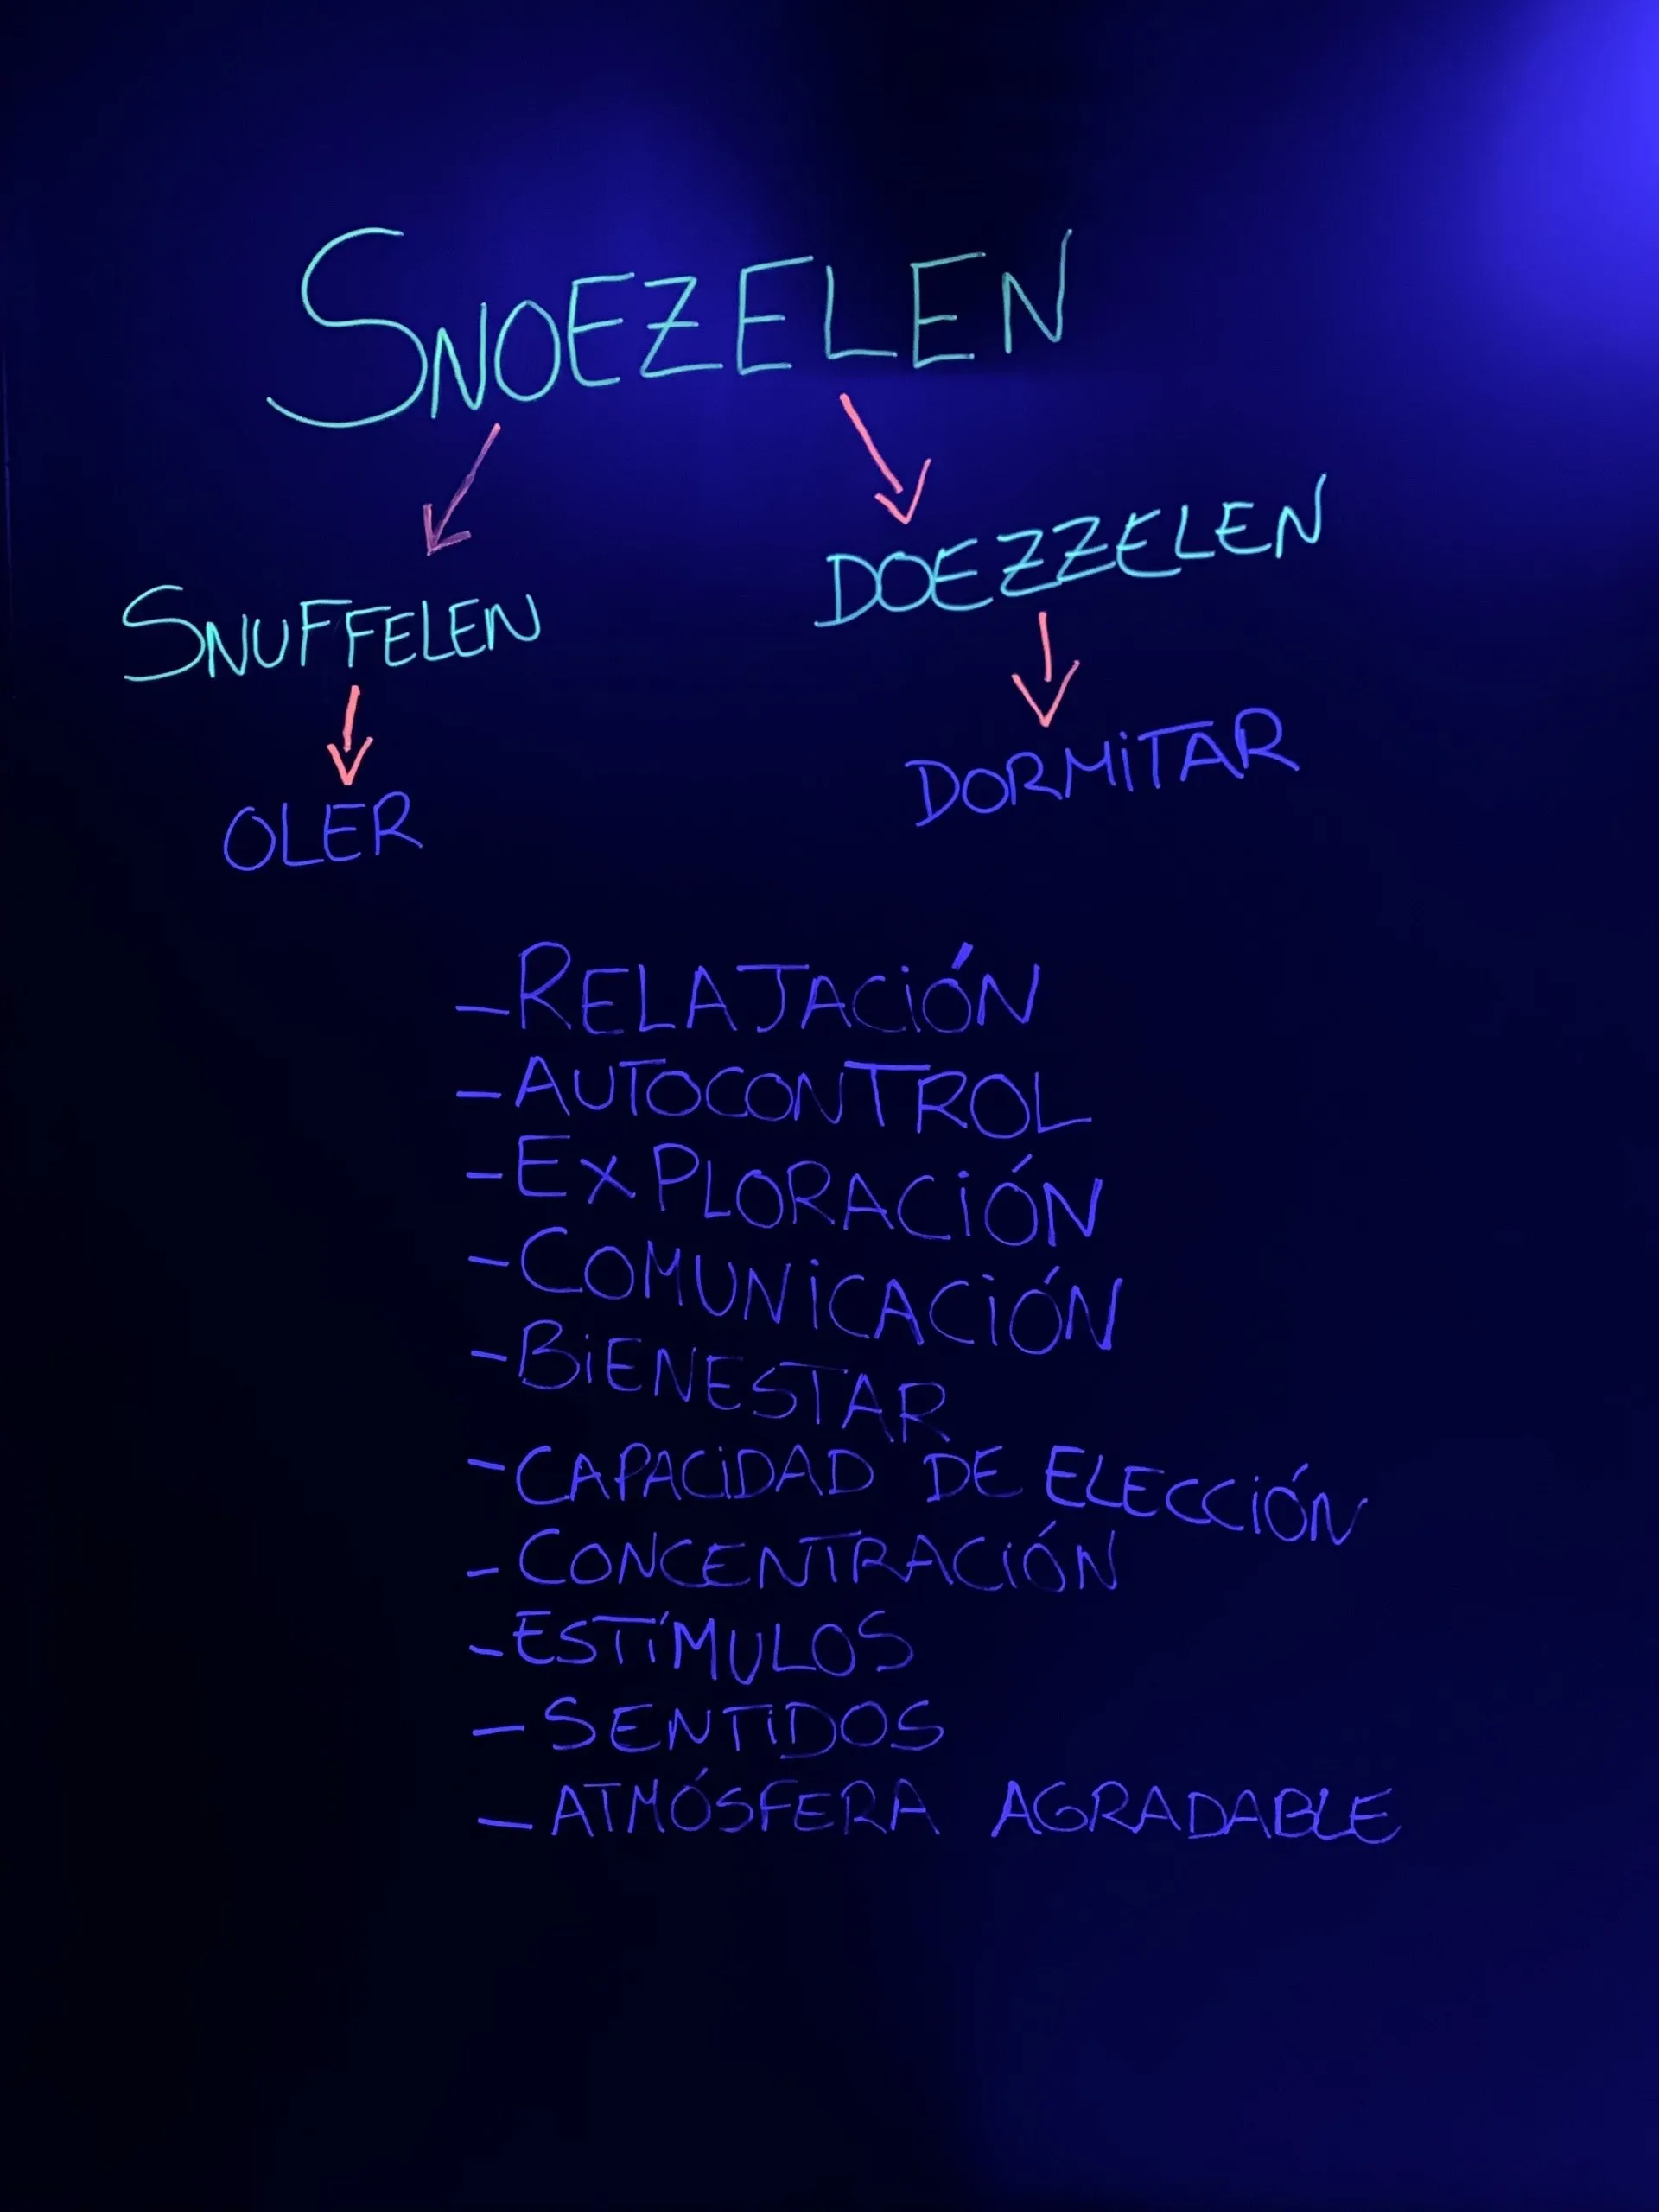 SNOEZELEN
SNUFFELEN
DOEZZELEN
OLER
DORMITAR
- RELAJACIÓN
- AUTOCONTROL
- EXPLORACIÓN
- COMUNICACIÓN
- BIENESTAR
- CAPACIDAD DE ELECCIÓN
- CONCENTRACIÓN
- ESTÍMULOS
- SENTIDOS
- ATMÓSFERA AGRADABLE